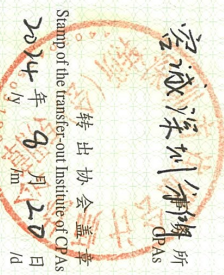 容诚深圳分所
CPAs
转出协会盖章
Stamp of the transfer-out Institute of CPAs
2024年8月20日
/y /m /d